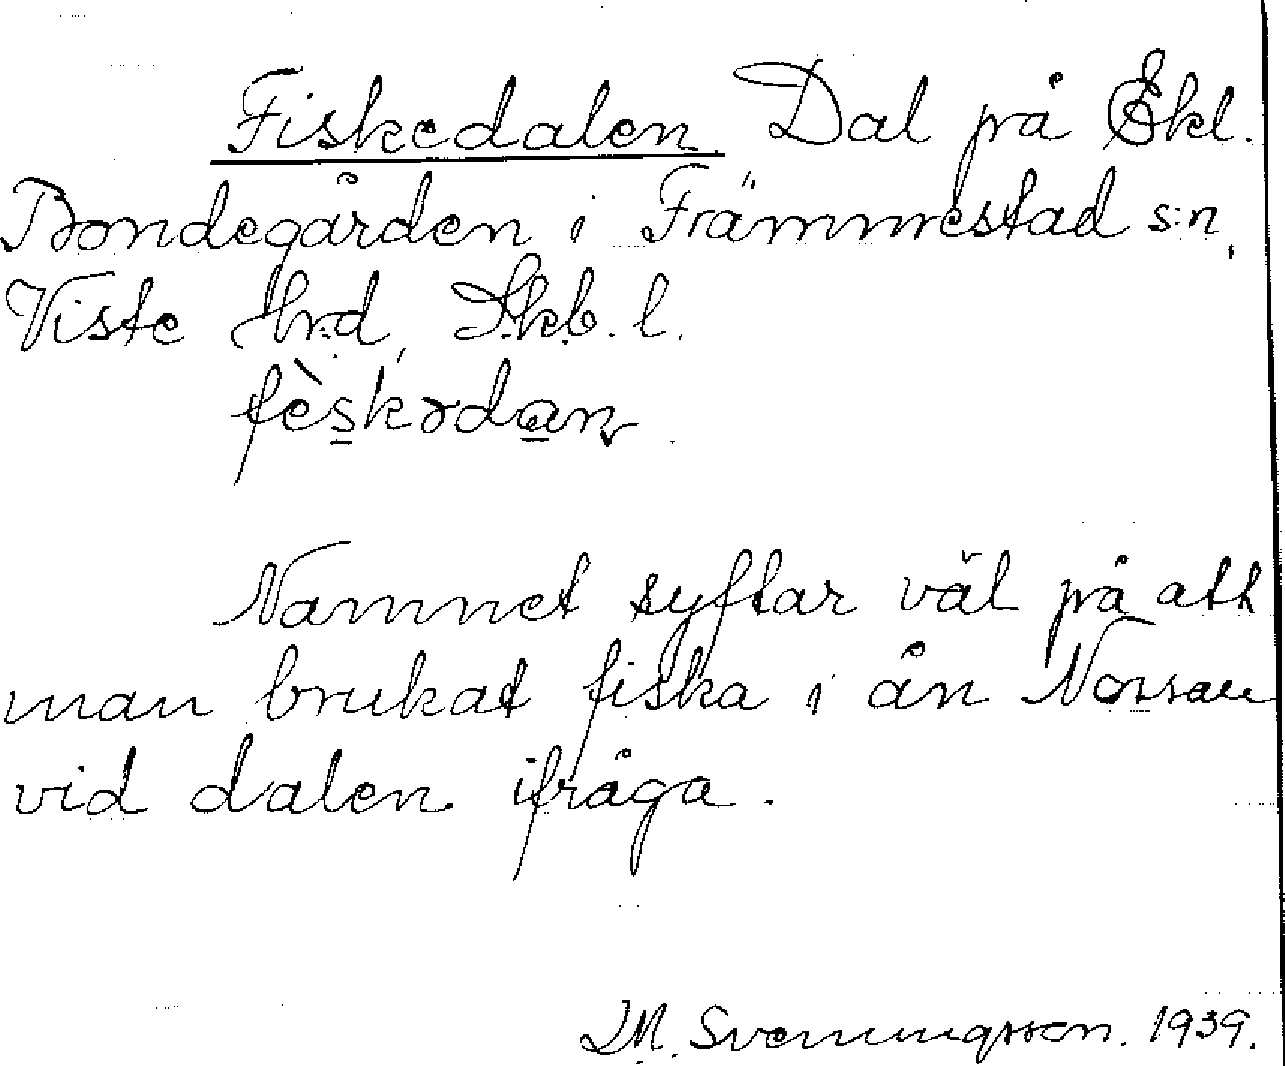 Fiskedalen. Dal på Ekl.
Bondegården i Främmestad s:n,
Viste hrd, Skb. l.
fèskədan
Namnet syftar väl på att
man brukat fiska i ån Nossan
vid dalen ifråga.
M. Svenningsson. 1939.